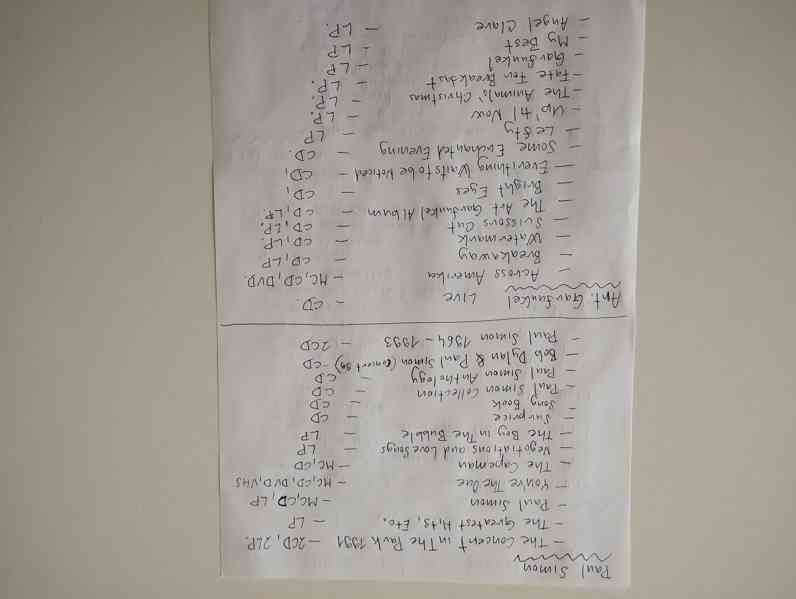 Paul Simon
- The Concert in The Park 1991 - 2CD, 2LP.
- The Greatest Hits, Etc. - LP
- Paul Simon - MC, CD, LP
- You're The One - MC, CD, DVD, VHS
- The Capeman - MC, CD
- Negotiations and Love Songs - LP
- The Boy In The Bubble - LP
- Surprice - CD
- Song Book - CD
- Paul Simon Collection - CD
- Paul Simon Anthology - CD
- Bob Dylan & Paul Simon (Concert 99) - CD
- Paul Simon 1964 - 1993 - 2CD
Art. Garfunkel Live - CD.
- Across Amerika - MC, CD, DVD.
- Breakaway - CD, LP
- Watermark - CD, LP.
- Scissors Cut - CD, LP.
- The Art Garfunkel Album - CD, LP.
- Bright Eyes - CD,
- Everithing Waits to be Noticed - CD,
- Some Enchanted Evening - CD.
- Lefty - LP
- Up 'til Now - LP.
- The Animals' Christmas - LP.
- Fate For Breakfast - LP.
- Garfunkel - LP
- My Best - LP
- Angel Clare - LP.